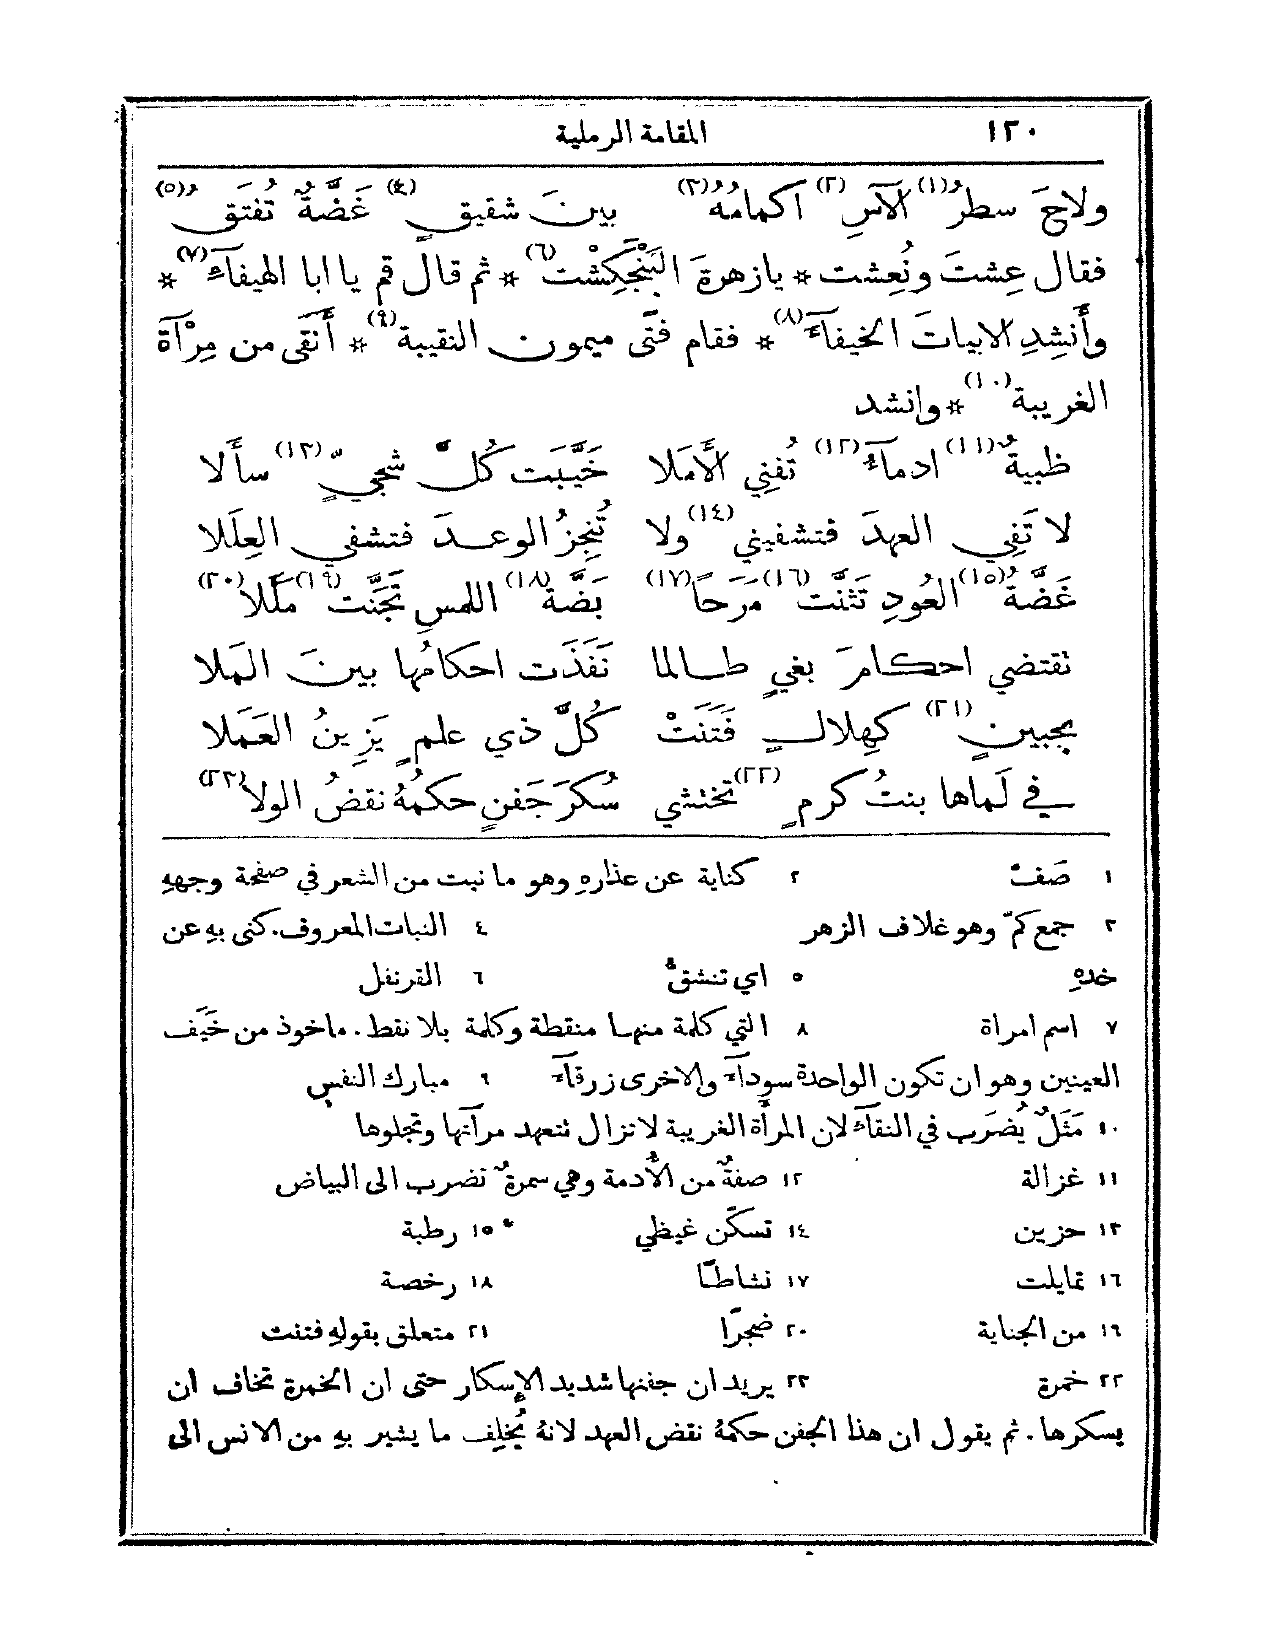 ١٢٠ المقامة الرملية
ولاحَ سطرُ(١) الآسِ(٢) اكمامهُ(٣) بينَ شقيقٍ(٤) غَضَّةٌ تُفتَقُ(٥)
فقال عِشتَ ونُعِشت * يازهرةَ البَنْجَكِشْت(٦) * ثم قال قم يا ابا الهيفآءِ(٧) *
وأَنشِدِ الابياتَ الخيفآءَ(٨) * فقام فتًى ميمون النقيبة(٩) * أَنقَى من مِرْآة
الغريبة(١٠) * وانشد
ظبيةٌ(١١) ادمآءُ(١٢) تُفنِي الأَمَلا خَيَّبَت كُلَّ شجيٍّ(١٣) سأَلا
لا تَفِي العهدَ فتشفيني(١٤) ولا تُنجِزُ الوعدَ فتشفي العِلَلا
غَضَّةُ(١٥) العُودِ تثنَّت(١٦) مَرَحًا(١٧) بَضَّةُ(١٨) اللمسِ تجَنَّت(١٩) مَلَلا(٢٠)
تقتضي احكامَ بغيٍ طالما نَفَذَت احكامُها بينَ المَلا
بجبينٍ(٢١) كهِلالٍ فَتَنَتْ كُلَّ ذي علمٍ يَزِينُ العَمَلا
في لَماها بنتُ كرمٍ(٢٢) تختشي سُكرَ جَفنٍ حكمُهُ نقضُ الولا(٢٣)
١ صَفٌّ ٢ كناية عن عذارهِ وهو ما نبت من الشعر في صفحة وجههِ
٣ جمع كمّ وهو غلاف الزهر ٤ النبات المعروف. كنى بهِ عن
خدهِ ٥ اي تنشقُّ ٦ القرنفل
٧ اسم امراة ٨ التي كلمة منها منقطة وكلمة بلا نقط. ماخوذ من خَيَف
العينين وهو ان تكون الواحدة سودآءَ والاخرى زرقآءَ ٩ مبارك النفس
١٠ مَثَلٌ يُضرَب في النقآءِ لان المرأَة الغريبة لا تزال تتعهد مرآتها وتجلوها
١١ غزالة ١٢ صفةٌ من الأُدمة وهي سمرةٌ تضرب الى البياض
١٣ حزين ١٤ تسكّن غيظي ١٥ رطبة
١٦ تمايلت ١٧ نشاطًا ١٨ رخصة
١٩ من الجناية ٢٠ ضجرًا ٢١ متعلق بقولهِ فتنت
٢٢ خمرة ٢٣ يريد ان جفنها شديد الإسكار حتى ان الخمرة تخاف ان
يسكرها. ثم يقول ان هذا الجفن حكمهُ نقض العهد لانهُ يُخلِف ما يشير بهِ من الانس الى